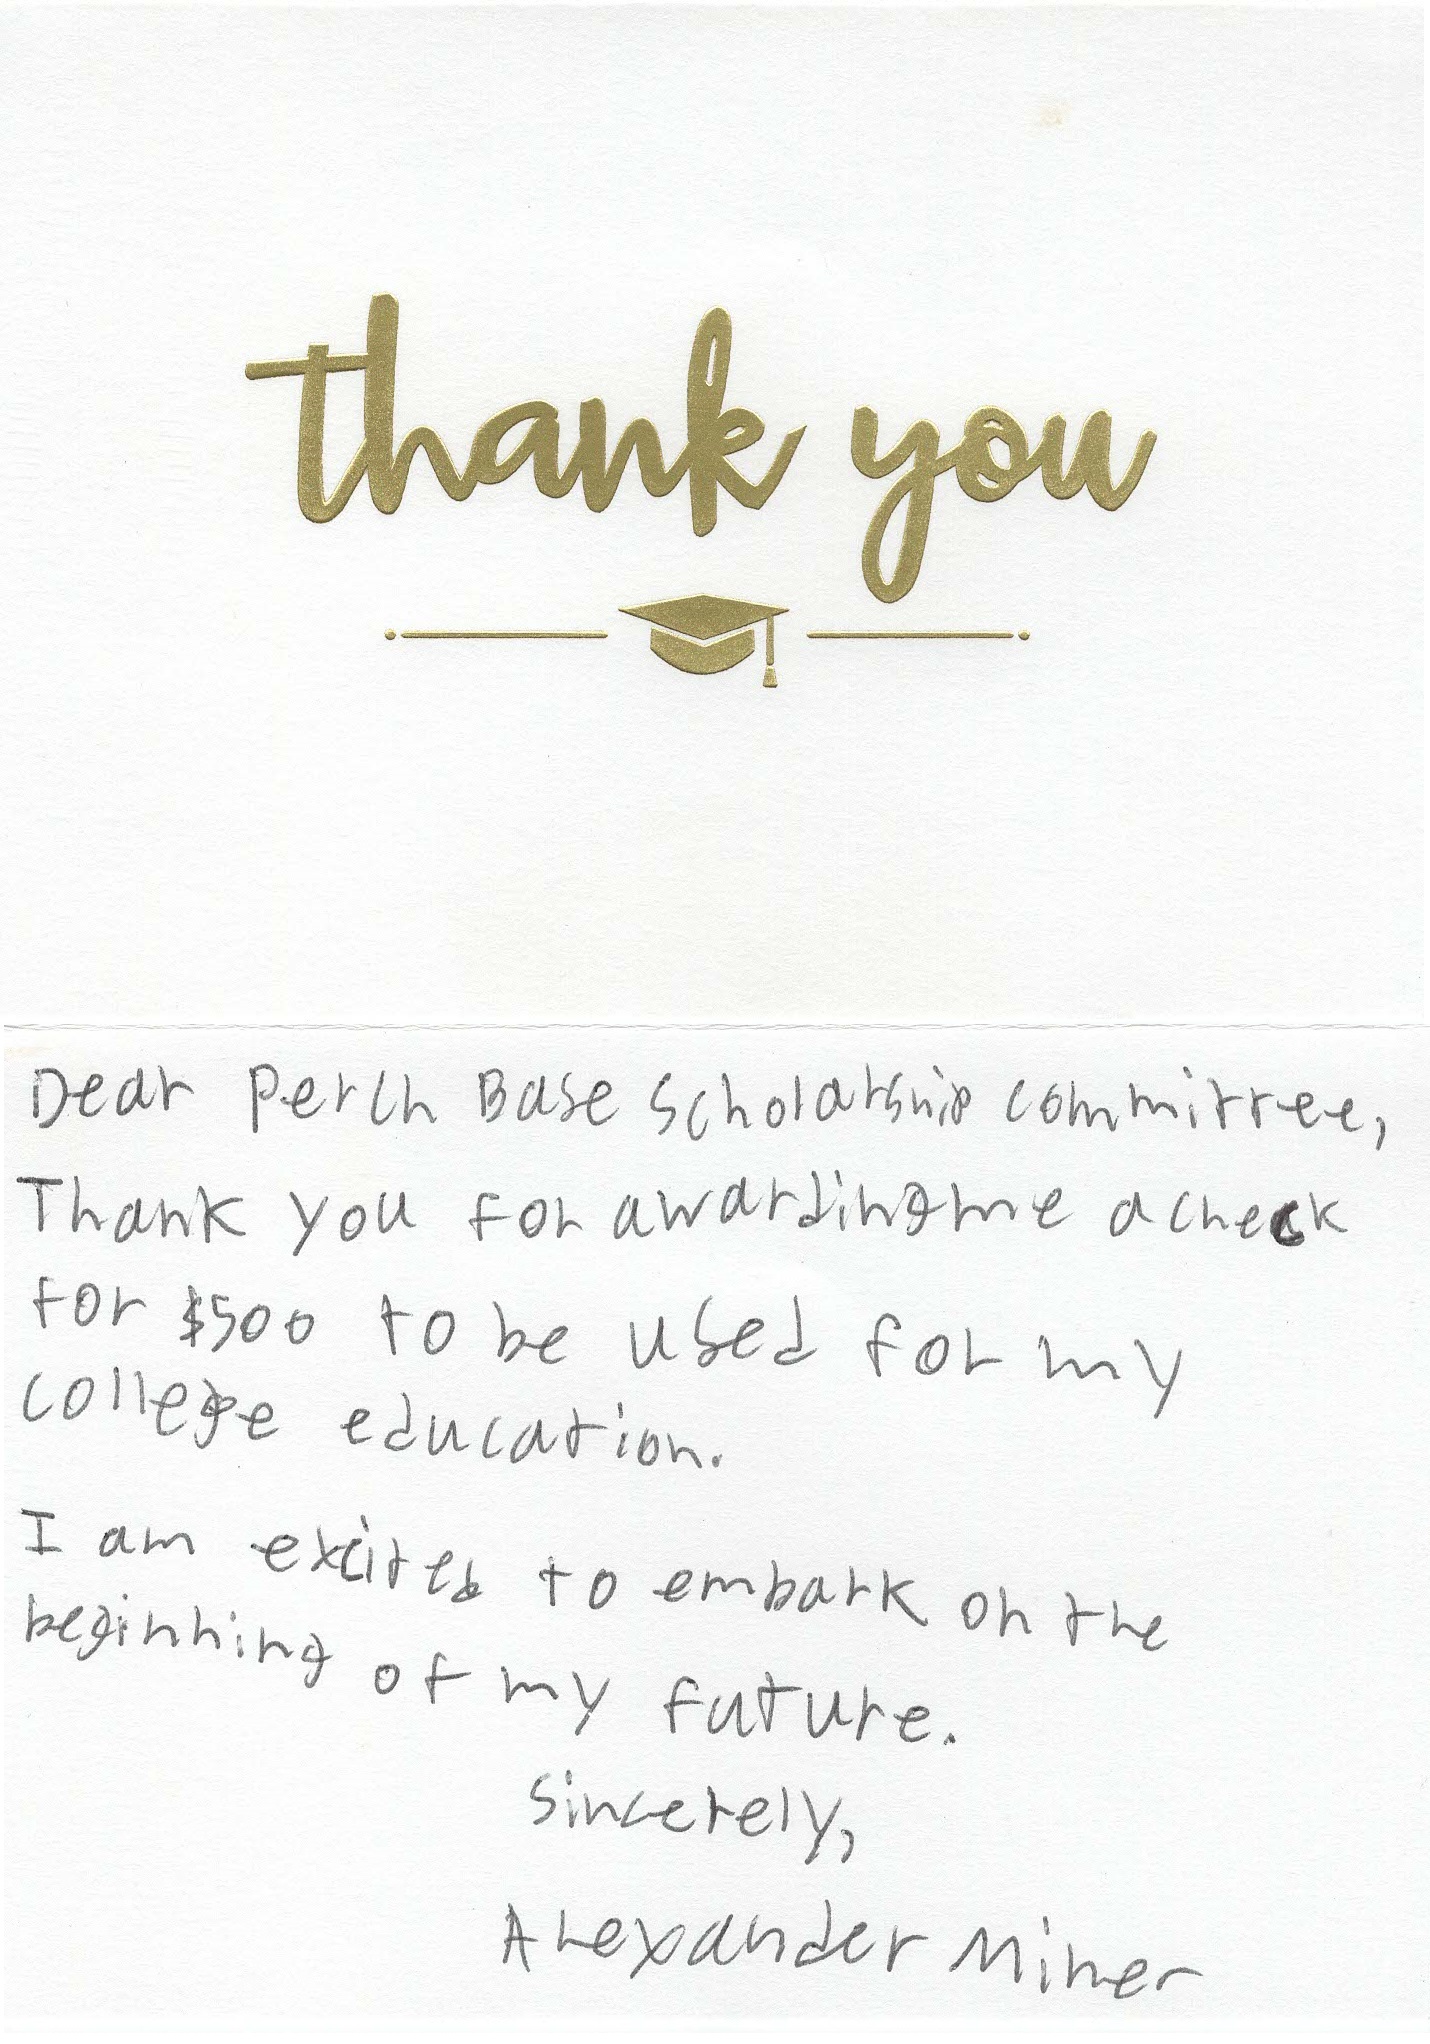 thank you
Dear Perch Base Scholarship committee,
Thank you for awarding me a check
for $500 to be used for my
college education.
I am excited to embark on the
beginning of my future.
Sincerely,
Alexander Miner